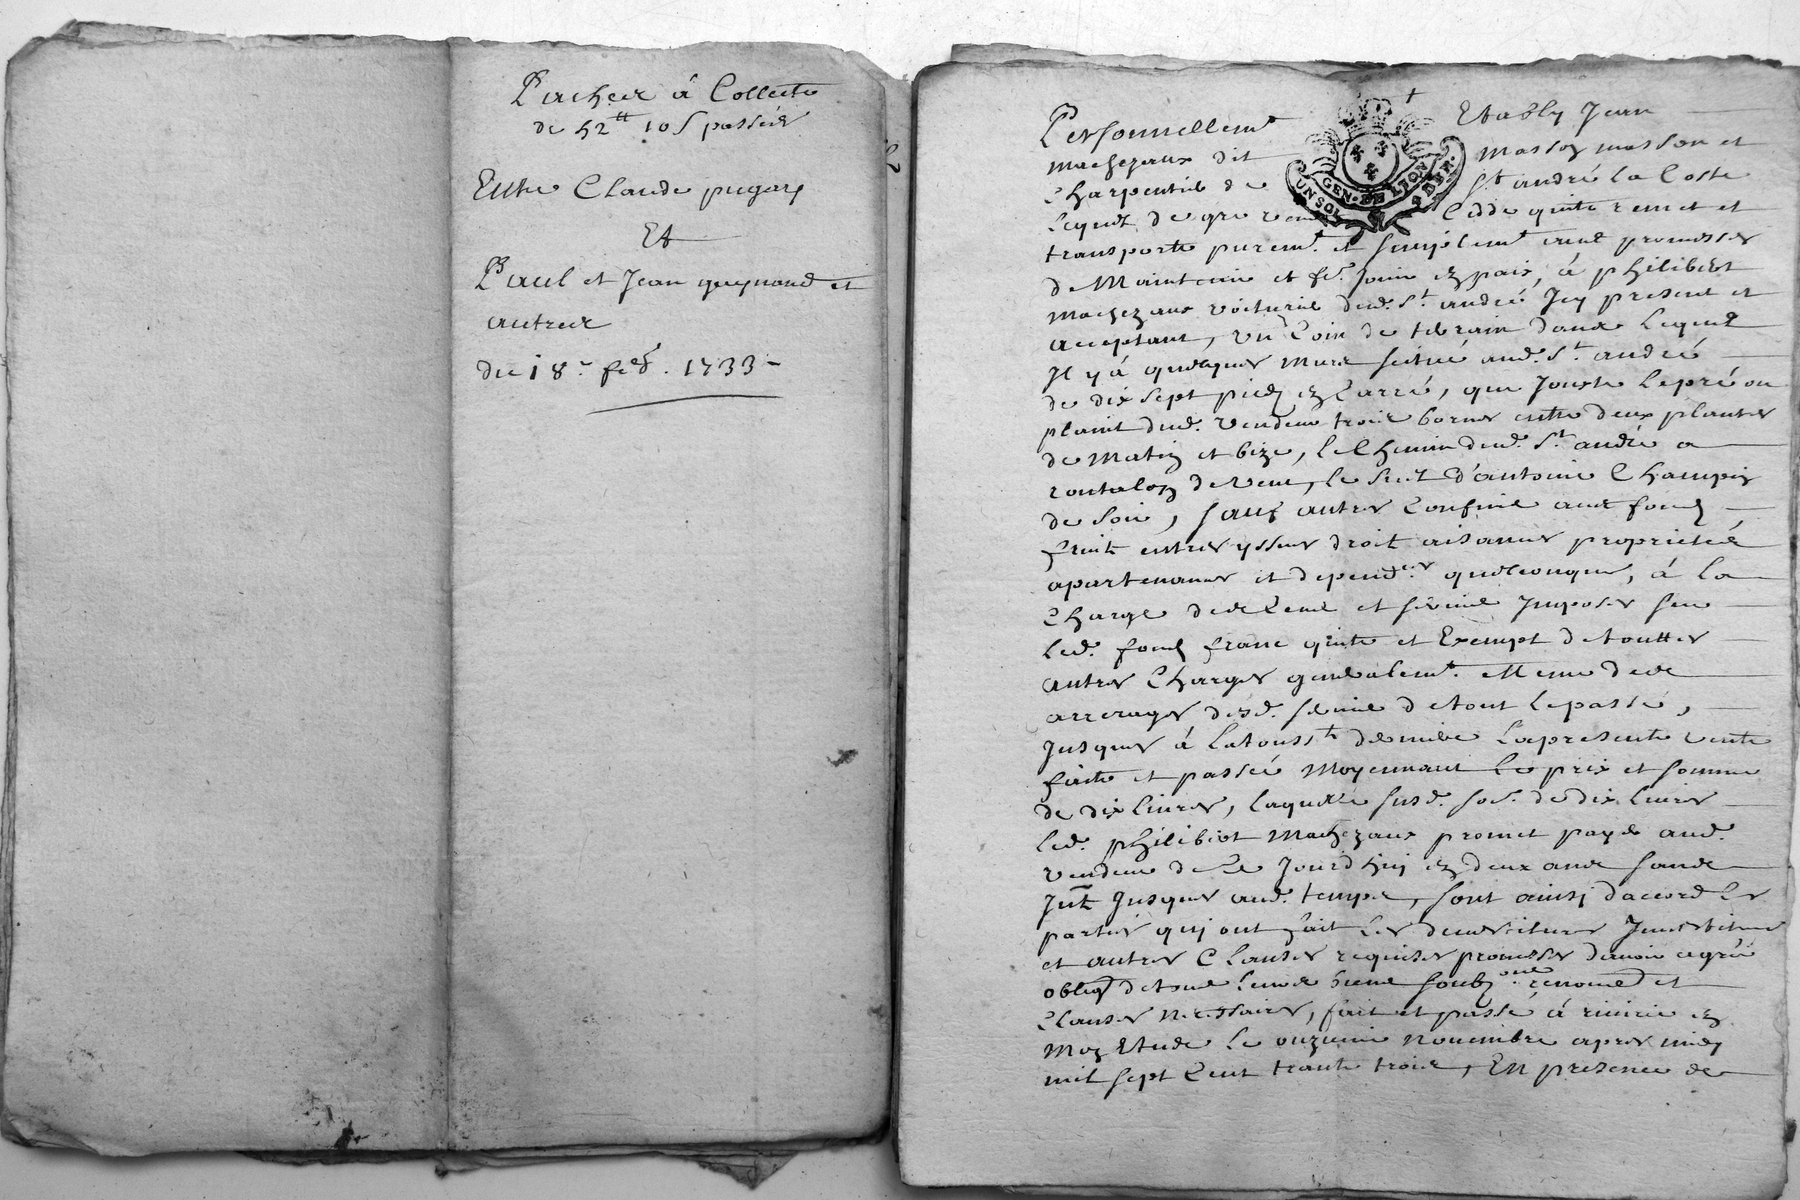 Pacher á Collecte
de 52tt 10 s passées
Entre Claude pugay
Et
Paul et Jean guynand et
autres
du 18e feb. 1733 -
Personnellemt Etably Jean
machezaux dit masson masson et
Charpentié de St andré la Coste
Lequel de gre vend Cedde quitte remet et
transporte puremt et simplemt avec promesses
de Maintenir et fe. Jouir en paix, á philibert
machezaux voiturié dud. St andré Jcy present et
acceptant, Un Coin de terrain dans Lequel
Jl y á quelques murs scitué aud. St andré
de dix sept pieds en Carré, que Jouxte Le pré ou
plant dud. Vendeur trois bornes entre deux plantés
de Matin et bize, Le Chemin dud. St andré a
rontalon de vent, Le d'antoine Champin
de soir, sauf autres Confins avec fonds
fruits entrées yssues droits aisances proprietés
apartenances et dependces quelconques, á La
Charge des Cens et servis Jmposés sur
Led. fonds franc quitte et Exempt de touttes
autres Charges generalemt. Meme des
arrerages desd. servis de tout Le passé,
Jusques á La Tousst derniere La presente vente
faite et passée Moyennant Le prix et somme
de dix Livres, Laquelle susd. so. de dix Livres
Led. philibert Machezaux promet payer aud.
vendeur de Ce Jourd'huy en deux ans sans
Jnt Jusques aud. temps, sont ainsy d'accord Les
parties quy ont fait Les devestitures Jnvestitures
et autres Clauses requises promesses d'avoir agréé
oblig de tous Leurs biens soubz.ons renonc et
Clauses necessaires, fait et passé á riverie en
Mon Etude Le onzieme novembre apres midy
mil sept Cent trante trois, En presence de
UN SOL GEN. DE LYON